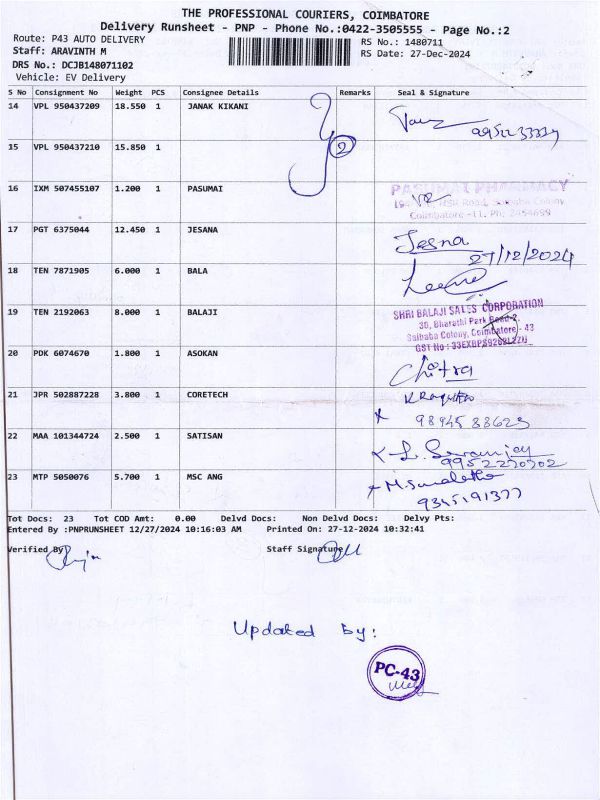 THE PROFESSIONAL COURIERS, COIMBATORE
Delivery Runsheet - PNP - Phone No.:0422-3505555 - Page No.:2
Route: P43 AUTO DELIVERY
RS No.: 1480711
Staff: ARAVINTH M
RS Date: 27-Dec-2024
DRS No.: DCJB148071102
Vehicle: EV Delivery
S No Consignment No Weight PCS Consignee Details Remarks Seal & Signature
14 VPL 950437209 18.550 1 JANAK KIKANI
15 VPL 950437210 15.850 1
2
16 IXM 507455107 1.200 1 PASUMAI
PASUMAI PHARMACY
Coimbatore -11. Ph: 2454699
17 PGT 6375044 12.450 1 JESANA
Jesna
27/12/2024
18 TEN 7871905 6.000 1 BALA
19 TEN 2192063 8.000 1 BALAJI
SHRI BALAJI SALES CORPORATION
30, Bharathi Park Road-2,
Saibaba Colony, Coimbatore - 43
20 PDK 6074670 1.800 1 ASOKAN
Chitra
21 JPR 502887228 3.800 1 CORETECH
22 MAA 101344724 2.500 1 SATISAN
23 MTP 5050076 5.700 1 MSC ANG
Tot Docs: 23 Tot COD Amt: 0.00 Delvd Docs: Non Delvd Docs: Delvy Pts:
Entered By :PNPRUNSHEET 12/27/2024 10:16:03 AM Printed On: 27-12-2024 10:32:41
Verified By
Staff Signature
Updated by:
PC-43